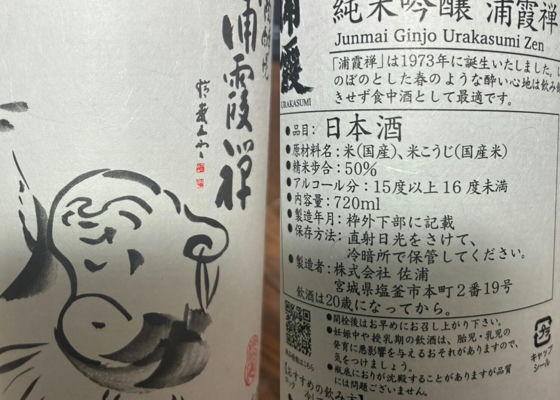 浦霞禅
浦霞
URAKASUMI
純米吟醸 浦霞禅
Junmai Ginjo Urakasumi Zen
「浦霞禅」は1973年に誕生いたしました。
のぼのとした春のような酔い心地は飲み
きせず食中酒として最適です。
●品目：日本酒
●原材料名：米(国産)、米こうじ(国産米)
●精米歩合：50%
●アルコール分：15度以上16度未満
●内容量：720ml
●製造年月：枠外下部に記載
●保存方法：直射日光をさけて、
冷暗所で保管してください。
●製造者：株式会社 佐浦
宮城県塩釜市本町2番19号
飲酒は20歳になってから。
●開栓後はお早めにお召し上がり下さい。
●妊娠中や授乳期の飲酒は、胎児・乳児の
発育に悪影響を与えるおそれがありますので、
気をつけましょう。
●瓶底におりが沈殿することがありますが品質
には問題ございません。
キャップ
シール
【おすすめの飲み方】